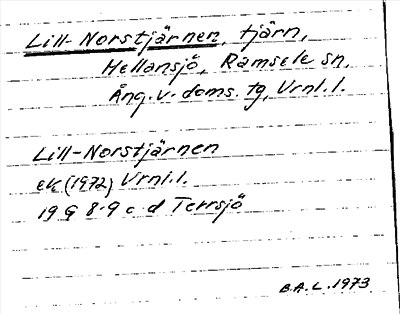 Lill-Norstjärnen, tjärn,
Hellansjö, Ramsele sn,
Ång. v. doms. tg, Vrnl.l.
Lill-Norstjärnen
ek (1972) Vrnl.l.
19 G 8-9 c d Terrsjö
B.A.L. 1973